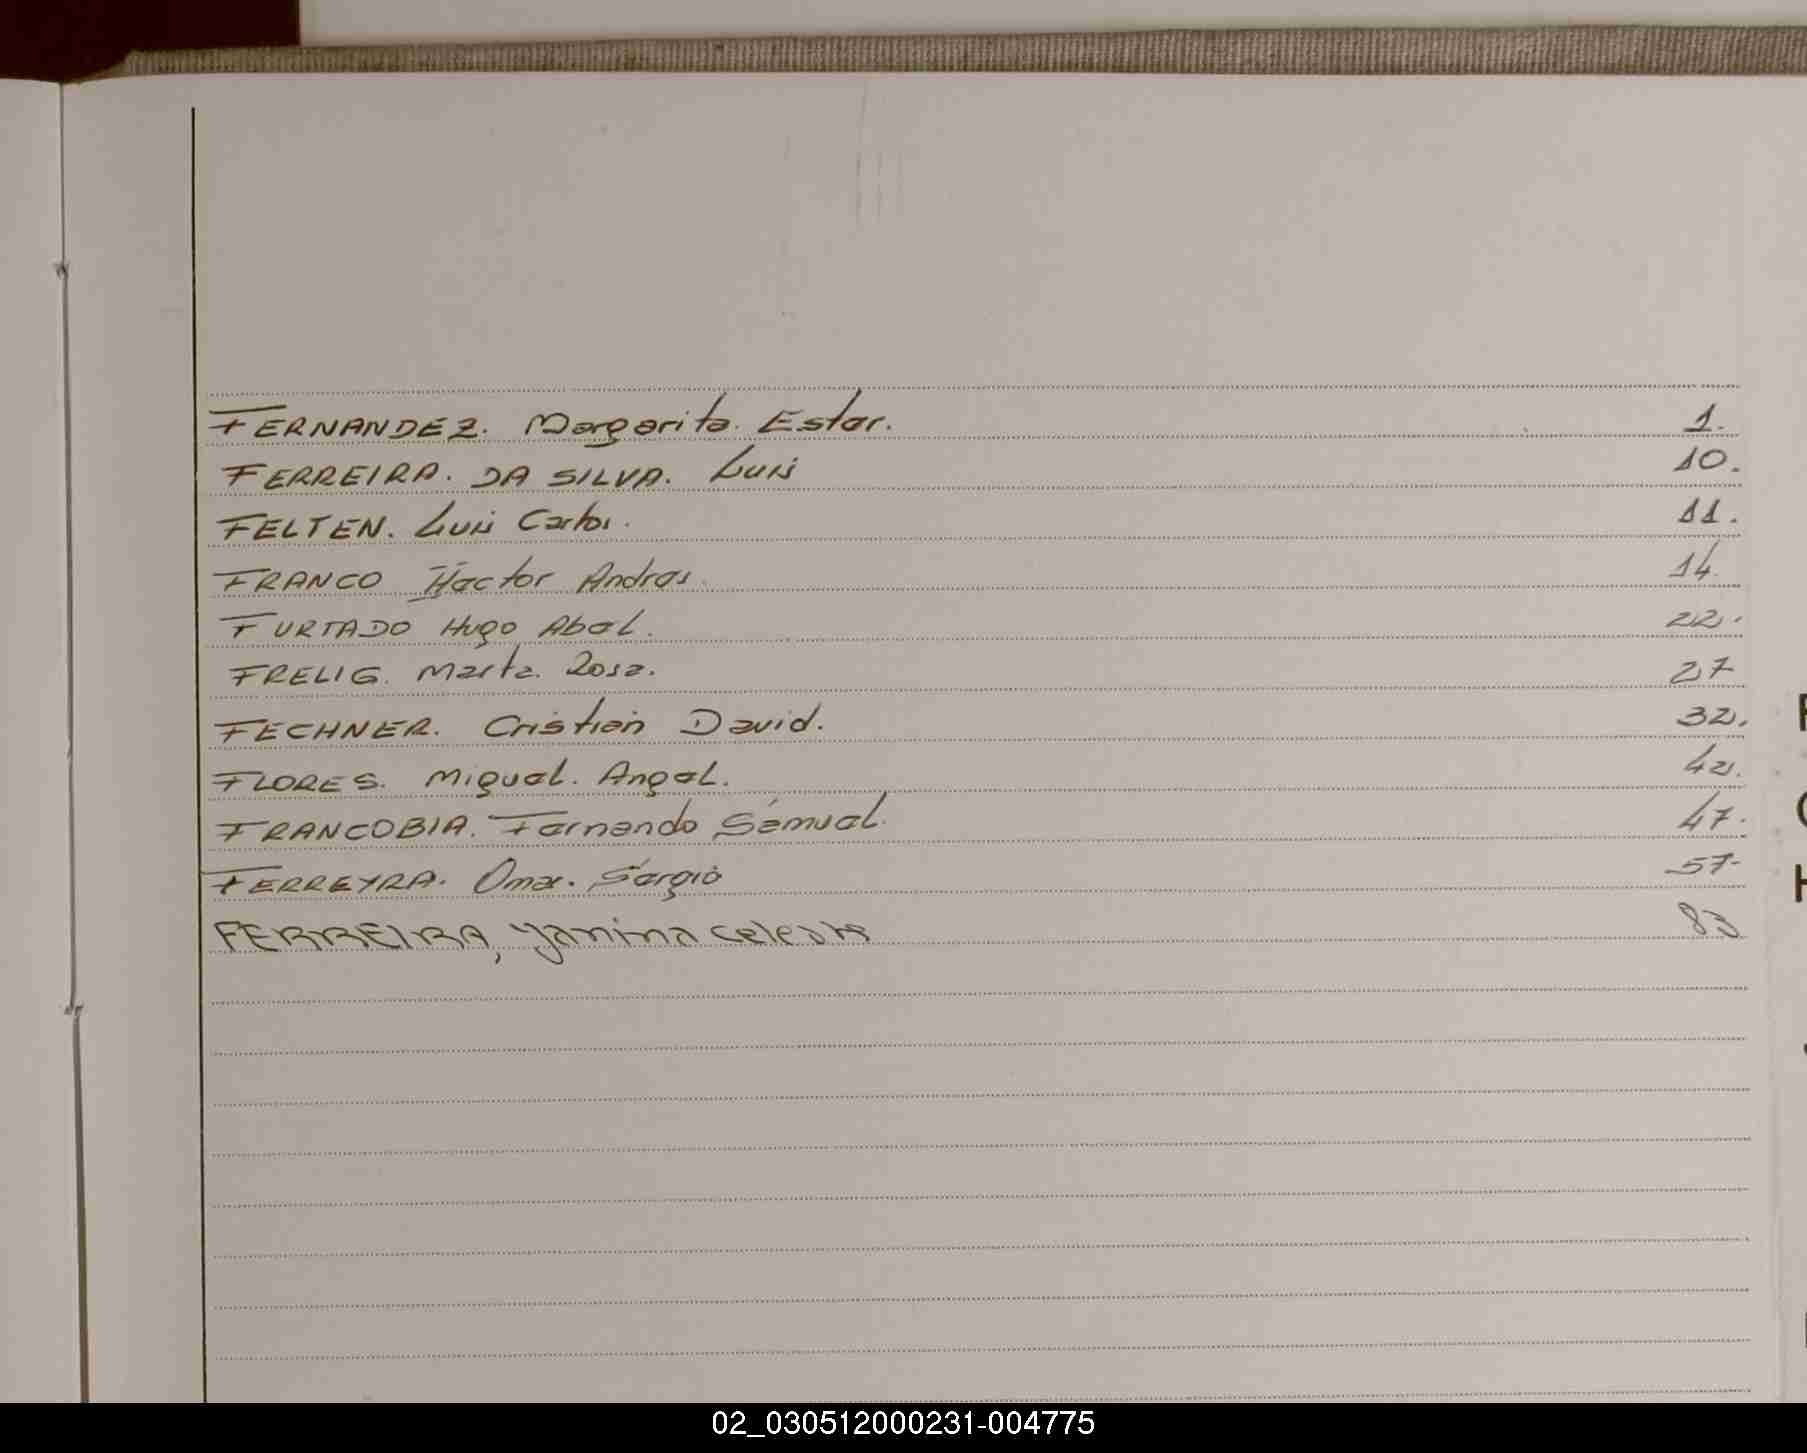 FERNANDEZ. Margarita. Ester. 1.
FERREIRA. DA SILVA. Luis 10.
FELTEN. Luis Carlos. 11.
FRANCO Hector Andres. 14.
FURTADO Hugo Abel. 22.
FRELIG. Marta. Rosa. 27
FECHNER. Cristian David. 32.
FLORES. Miguel. Angel. 42.
FRANCOBIA. Fernando Samuel. 47.
FERREYRA. Omar. Sergio 57-
FERREIRA, Yanina Celeste 83
02_030512000231-004775